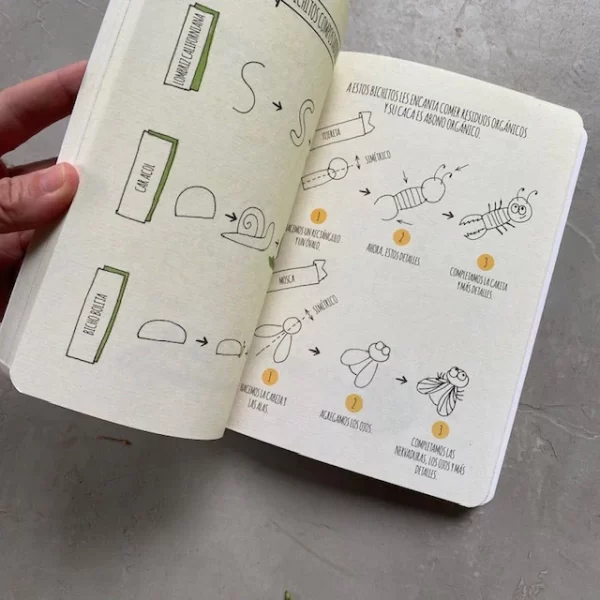 LOMBRIZ CALIFORNIANA
CARACOL
BICHO BOLITA
A ESTOS BICHITOS LES ENCANTA COMER RESIDUOS ORGÁNICOS
Y SU CACA ES ABONO ORGÁNICO.
TIJERETA
SIMÉTRICO
1
HACEMOS UN RECTÁNGULO
Y UN ÓVALO.
2
AHORA, ESTOS DETALLES.
3
COMPLETAMOS LA CARITA
Y MÁS DETALLES.
MOSCA
SIMÉTRICO
1
HACEMOS LA CARITA Y
LAS ALAS.
2
AGREGAMOS LOS OJOS.
3
COMPLETAMOS LAS
NERVADURAS, LOS OJOS Y MÁS
DETALLES.